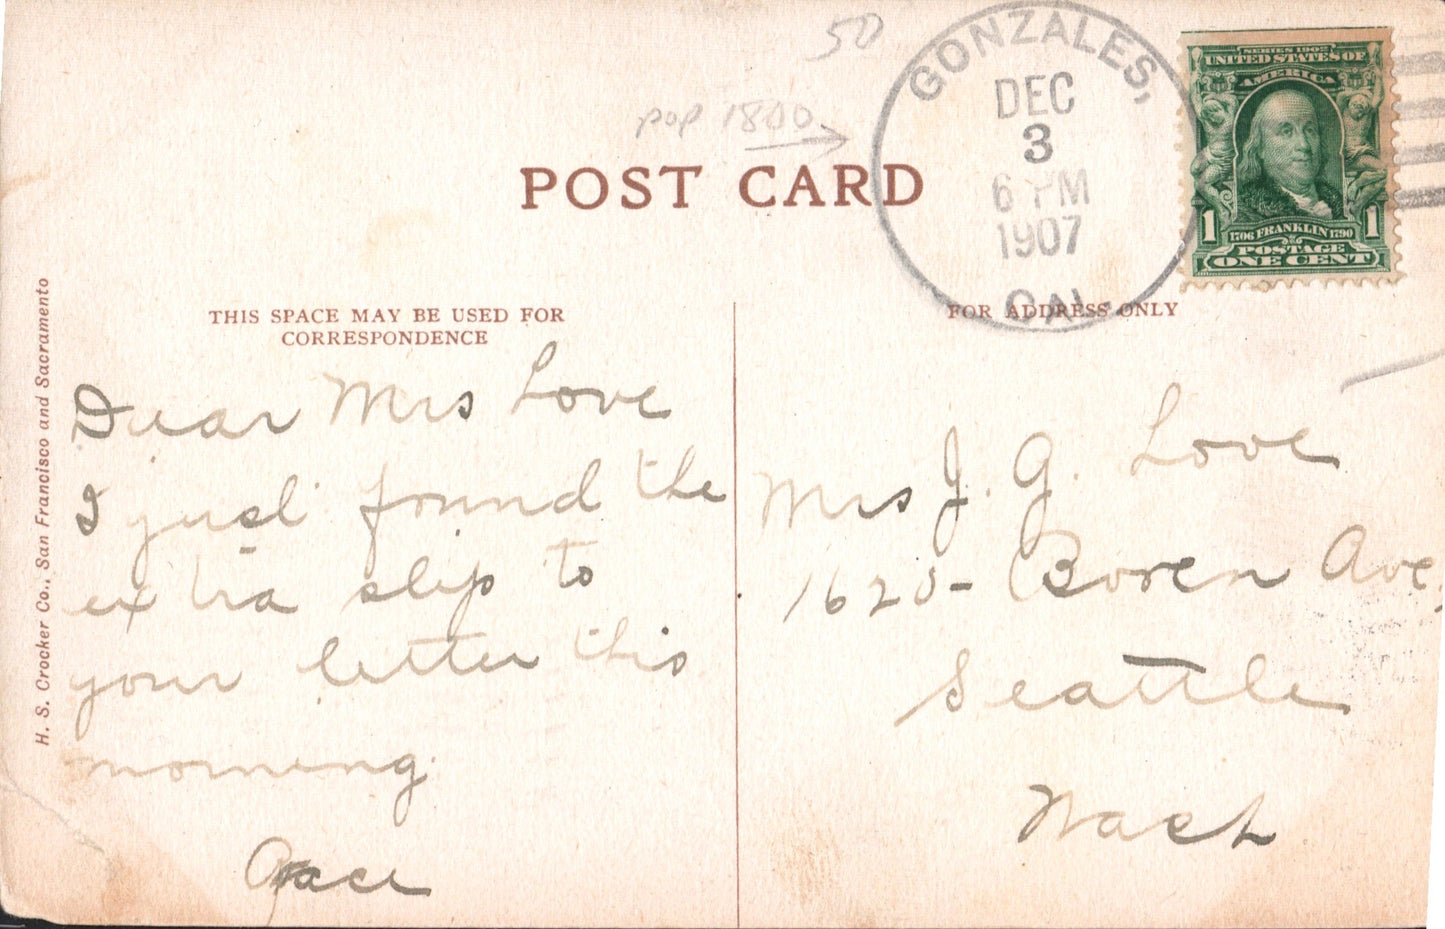 50
pop 1800
POST CARD
GONZALES,
DEC
3
6 PM
1907
CAL.
SERIES 1902
UNITED STATES OF
AMERICA
1 1
1706 FRANKLIN 1790
POSTAGE
ONE CENT
THIS SPACE MAY BE USED FOR
CORRESPONDENCE
FOR ADDRESS ONLY
H. S. Crocker Co., San Francisco and Sacramento
Dear Mrs Love
I just found the
extra slip to
your letter this
morning.
Mrs J. G. Love
1620 - Boren Ave,
Seattle
Wash